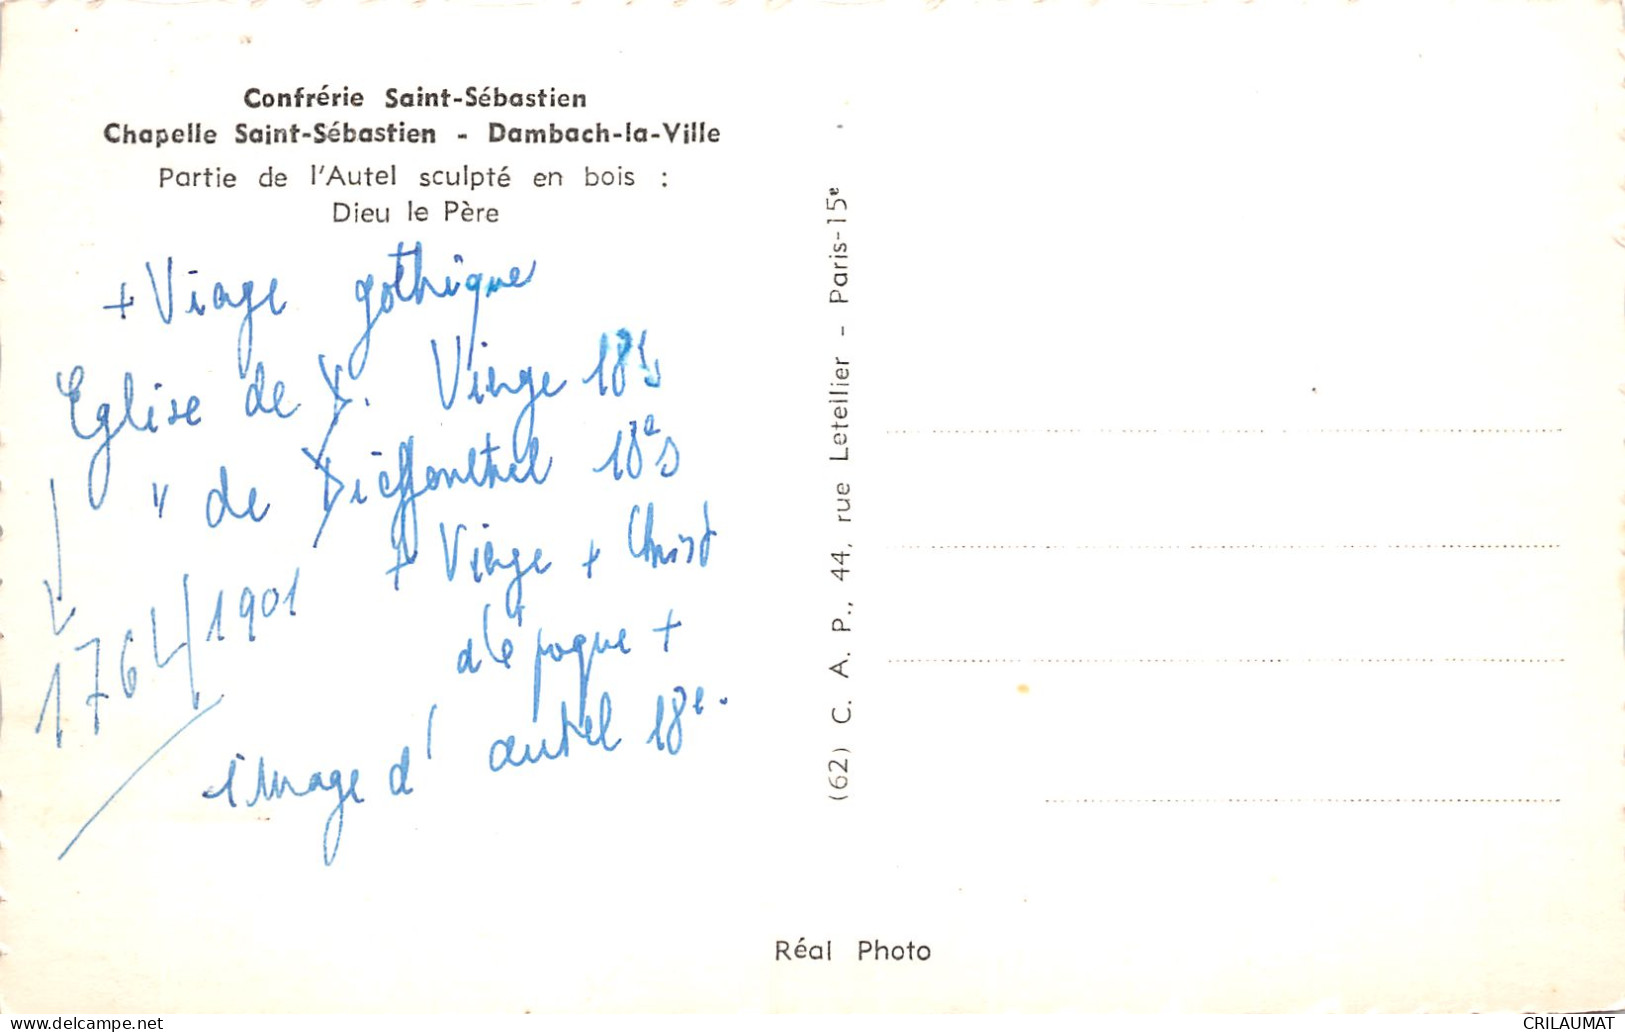 Confrérie Saint-Sébastien
Chapelle Saint-Sébastien - Dambach-la-Ville
Partie de l'Autel sculpté en bois :
Dieu le Père
+ Vierge gothique
Eglise de D. Vierge 18e s
" de Dieffenthal 18e s
+ Vierge + Christ
d'époque +
1764/1901
image d'autel 18e.
(62) C. A. P., 44, rue Letellier - Paris-15e
Réal Photo
CRILAUMAT